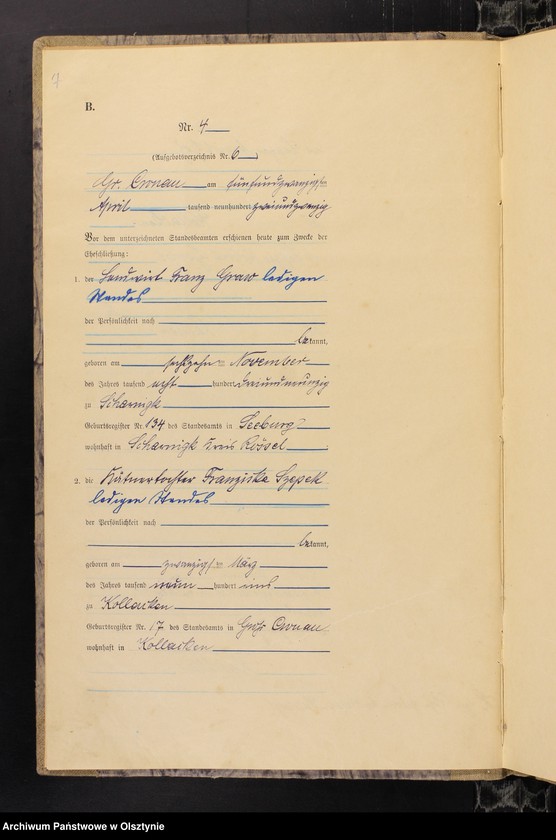 7
B.
Nr. 4
(Aufgebotsverzeichnis Nr. 6)
Gr. Cronau am fünfundzwanzigsten
April tausend neunhundert zweiundzwanzig
Vor dem unterzeichneten Standesbeamten erschienen heute zum Zwecke der
Eheschließung:
1. der Landwirt Franz Graw ledigen
Standes
der Persönlichkeit nach
bekannt,
geboren am sechzehnten November
des Jahres tausend acht hundert
zu Scharnigk
Geburtsregister Nr. 134 des Standesamts in Seeburg
wohnhaft in Scharnigk Kreis Rössel
2. die Kätnertochter Franziska Szepek
ledigen Standes
der Persönlichkeit nach
bekannt,
geboren am zwanzigsten März
des Jahres tausend neun hundert eins
zu Kollacken
Geburtsregister Nr. 17 des Standesamts in Groß Cronau
wohnhaft in Kollacken
Archiwum Państwowe w Olsztynie